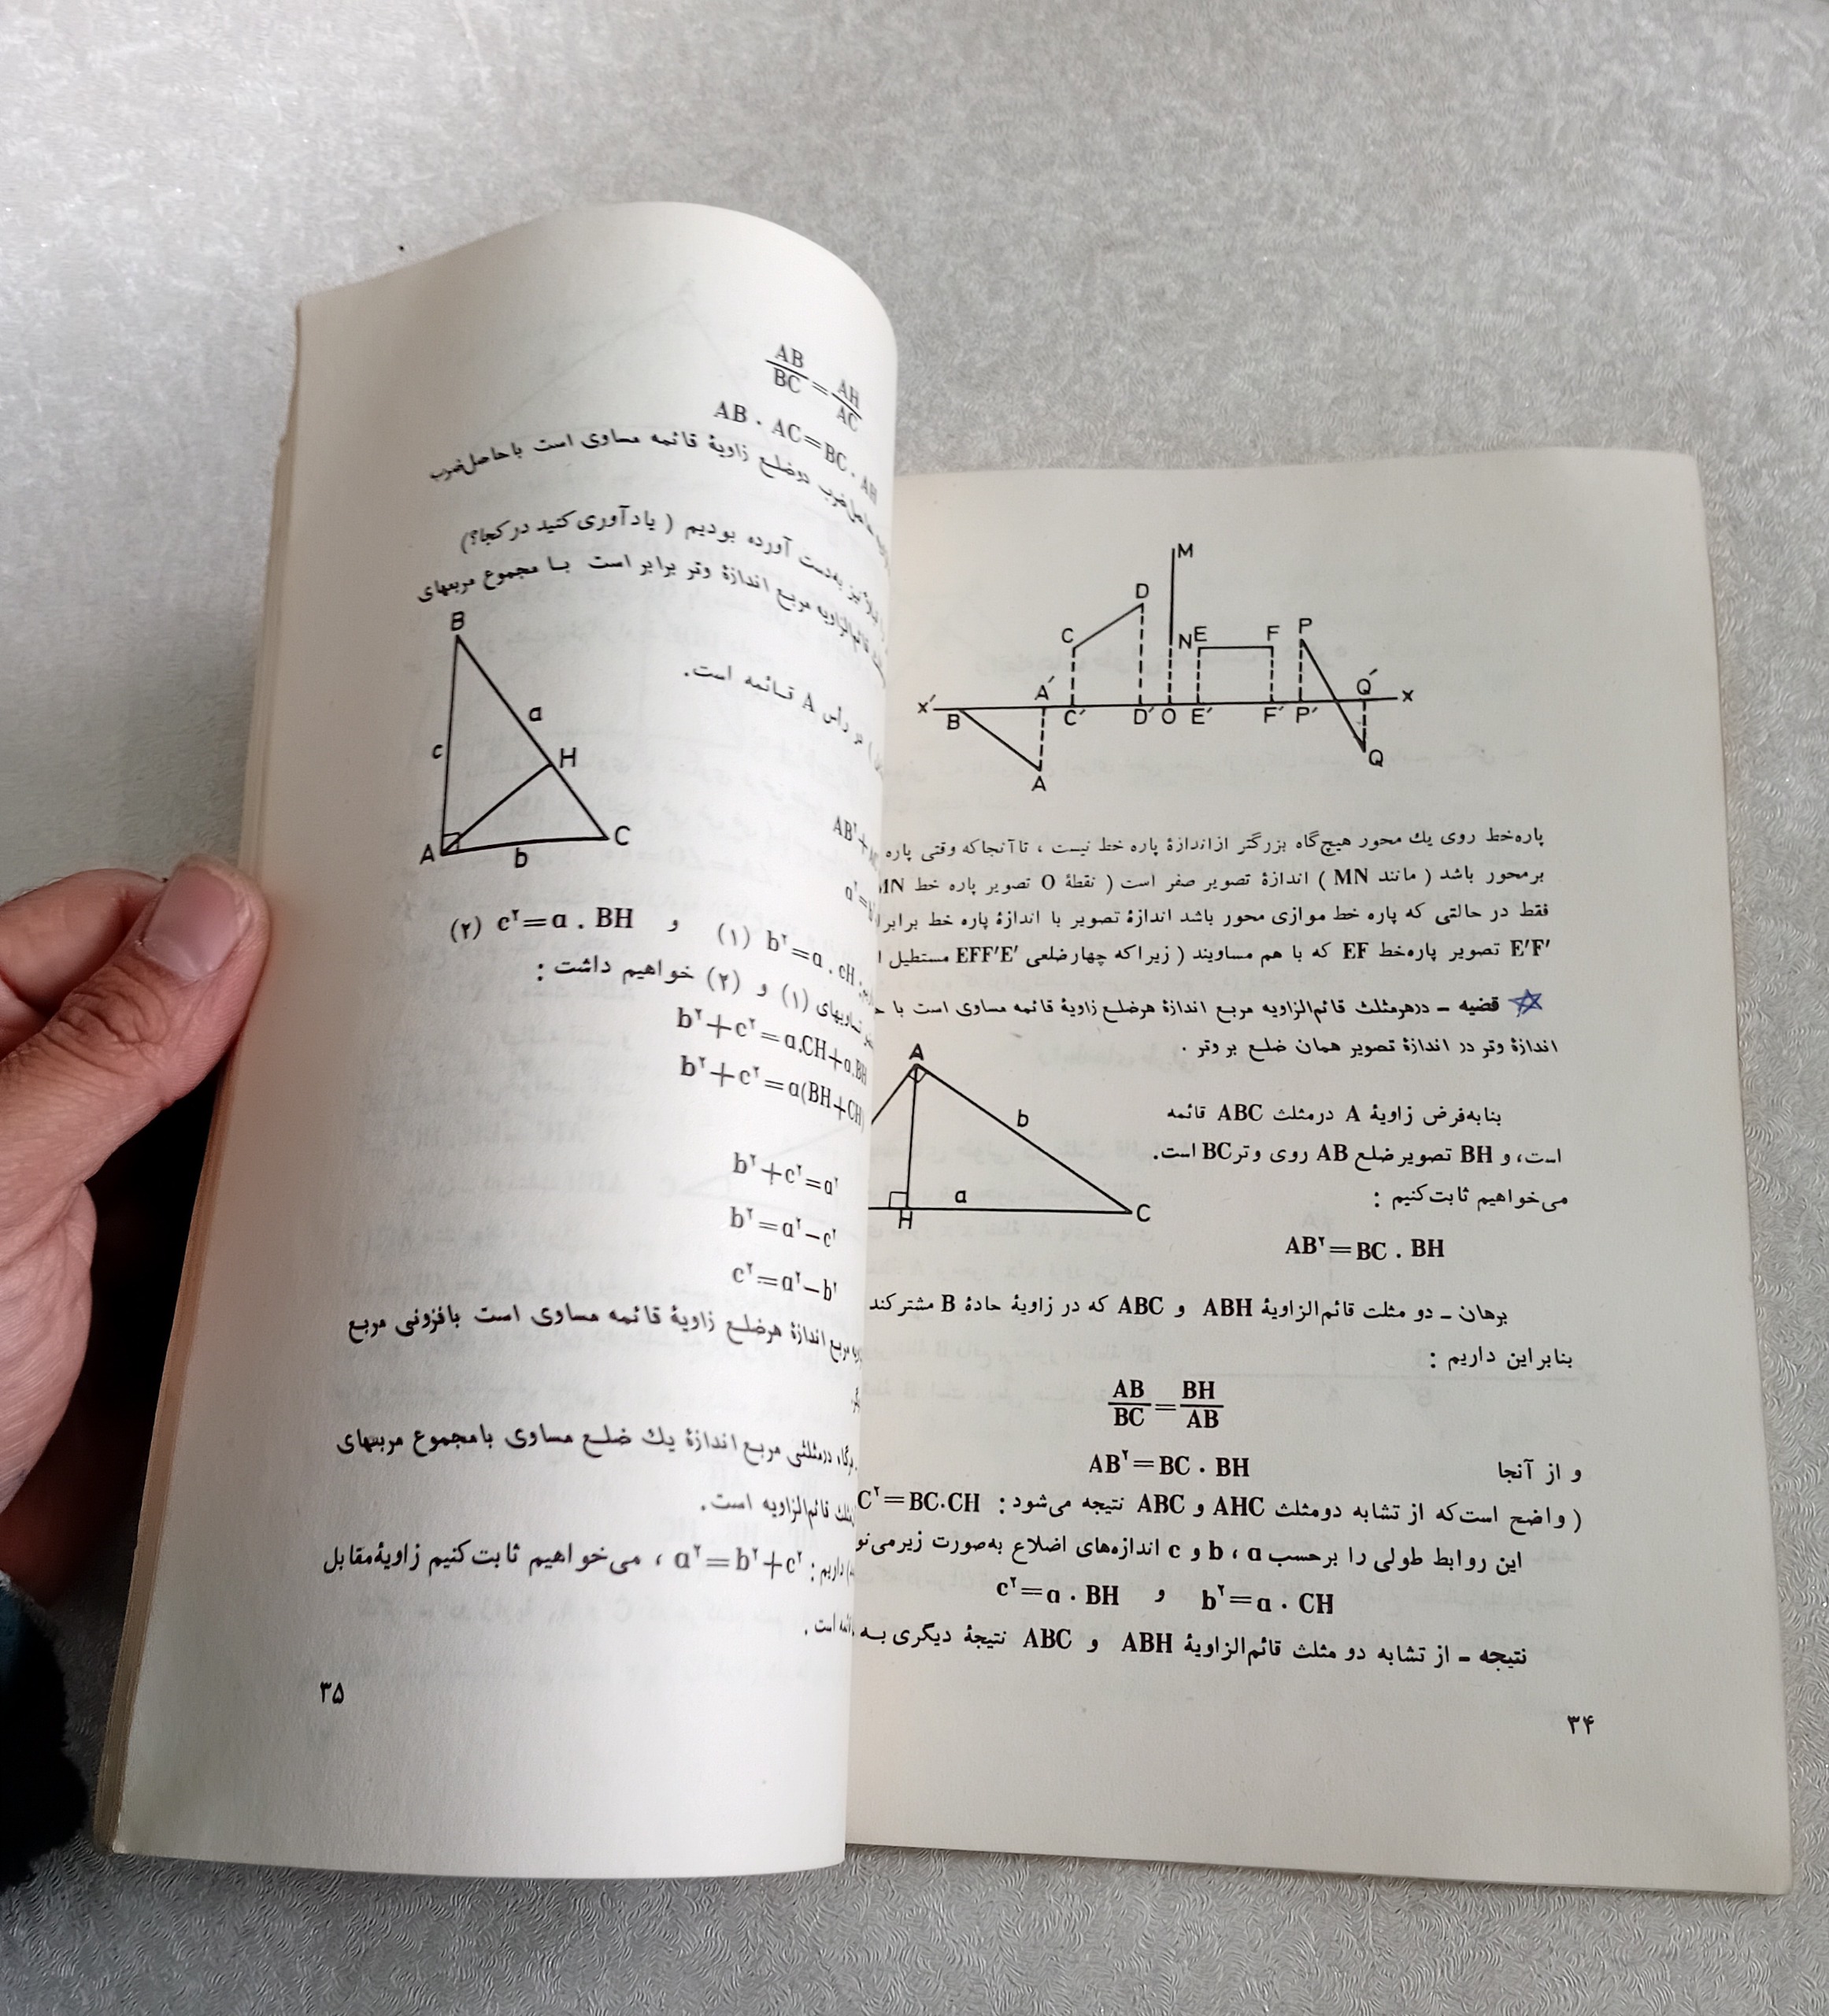 M
D
C
N E F P
x' A' Q' x
B C' D' O E' F' P'
A Q
پاره‌خط روی یك محور هیچ‌گاه بزرگتر از اندازهٔ پاره خط نیست ، تا آنجا که وقتی پاره
برمحور باشد ( مانند MN ) اندازهٔ تصویر صفر است ( نقطهٔ O تصویر پاره خط MN
فقط در حالتی که پاره خط موازی محور باشد اندازهٔ تصویر با اندازهٔ پاره خط برابر
E'F' تصویر پاره‌خط EF که با هم مساویند ( زیرا که چهارضلعی EFF'E' مستطیل
قضیه ـ درهرمثلث قائم‌الزاویه مربع اندازهٔ هرضلع زاویهٔ قائمه مساوی است با
اندازهٔ وتر در اندازهٔ تصویر همان ضلع بر وتر .
A
b
a
H C
بنابه‌فرض زاویهٔ A درمثلث ABC قائمه
است، و BH تصویر ضلع AB روی وتر BC است.
می‌خواهیم ثابت کنیم :
AB²=BC . BH
برهان ـ دو مثلث قائم‌الزاویهٔ ABH و ABC که در زاویهٔ حادهٔ B مشترکند
بنابراین داریم :
AB/BC=BH/AB
و از آنجا AB²=BC . BH
( واضح است که از تشابه دومثلث AHC و ABC نتیجه می‌شود : C²=BC.CH
این روابط طولی را برحسب a ، b و c اندازه‌های اضلاع به‌صورت زیر
c²=a . BH و b²=a . CH
نتیجه ـ از تشابه دو مثلث قائم‌الزاویهٔ ABH و ABC نتیجهٔ دیگری بـه
۳۴
AB/BC=AH/AC
AB . AC=BC . AH
حاصل‌ضرب دوضلع زاویهٔ قائمه مساوی است باحاصل‌ضرب
نیز به‌دست آورده بودیم ( یادآوری کنید در کجا؟)
قائم‌الزاویه مربع اندازهٔ وتر برابر است بـا مجموع مربعهای
در رأس A قـائمه است.
B
a
c
H
A b C
AB²+
a²=
b²=a . cH (۱) و c²=a . BH (۲)
تساویهای (۱) و (۲) خواهیم داشت :
b²+c²=a.CH+a.BH
b²+c²=a(BH+CH)
b²+c²=a²
b²=a²−c²
c²=a²−b²
مربع اندازهٔ هرضلع زاویهٔ قائمه مساوی است بافزونی مربع
درمثلثی مربع اندازهٔ یك ضلع مساوی بامجموع مربعهای
مثلث قائم‌الزاویه است.
داریم : a²=b²+c² ، می‌خواهیم ثابت کنیم زاویهٔ‌مقابل
است .
۳۵